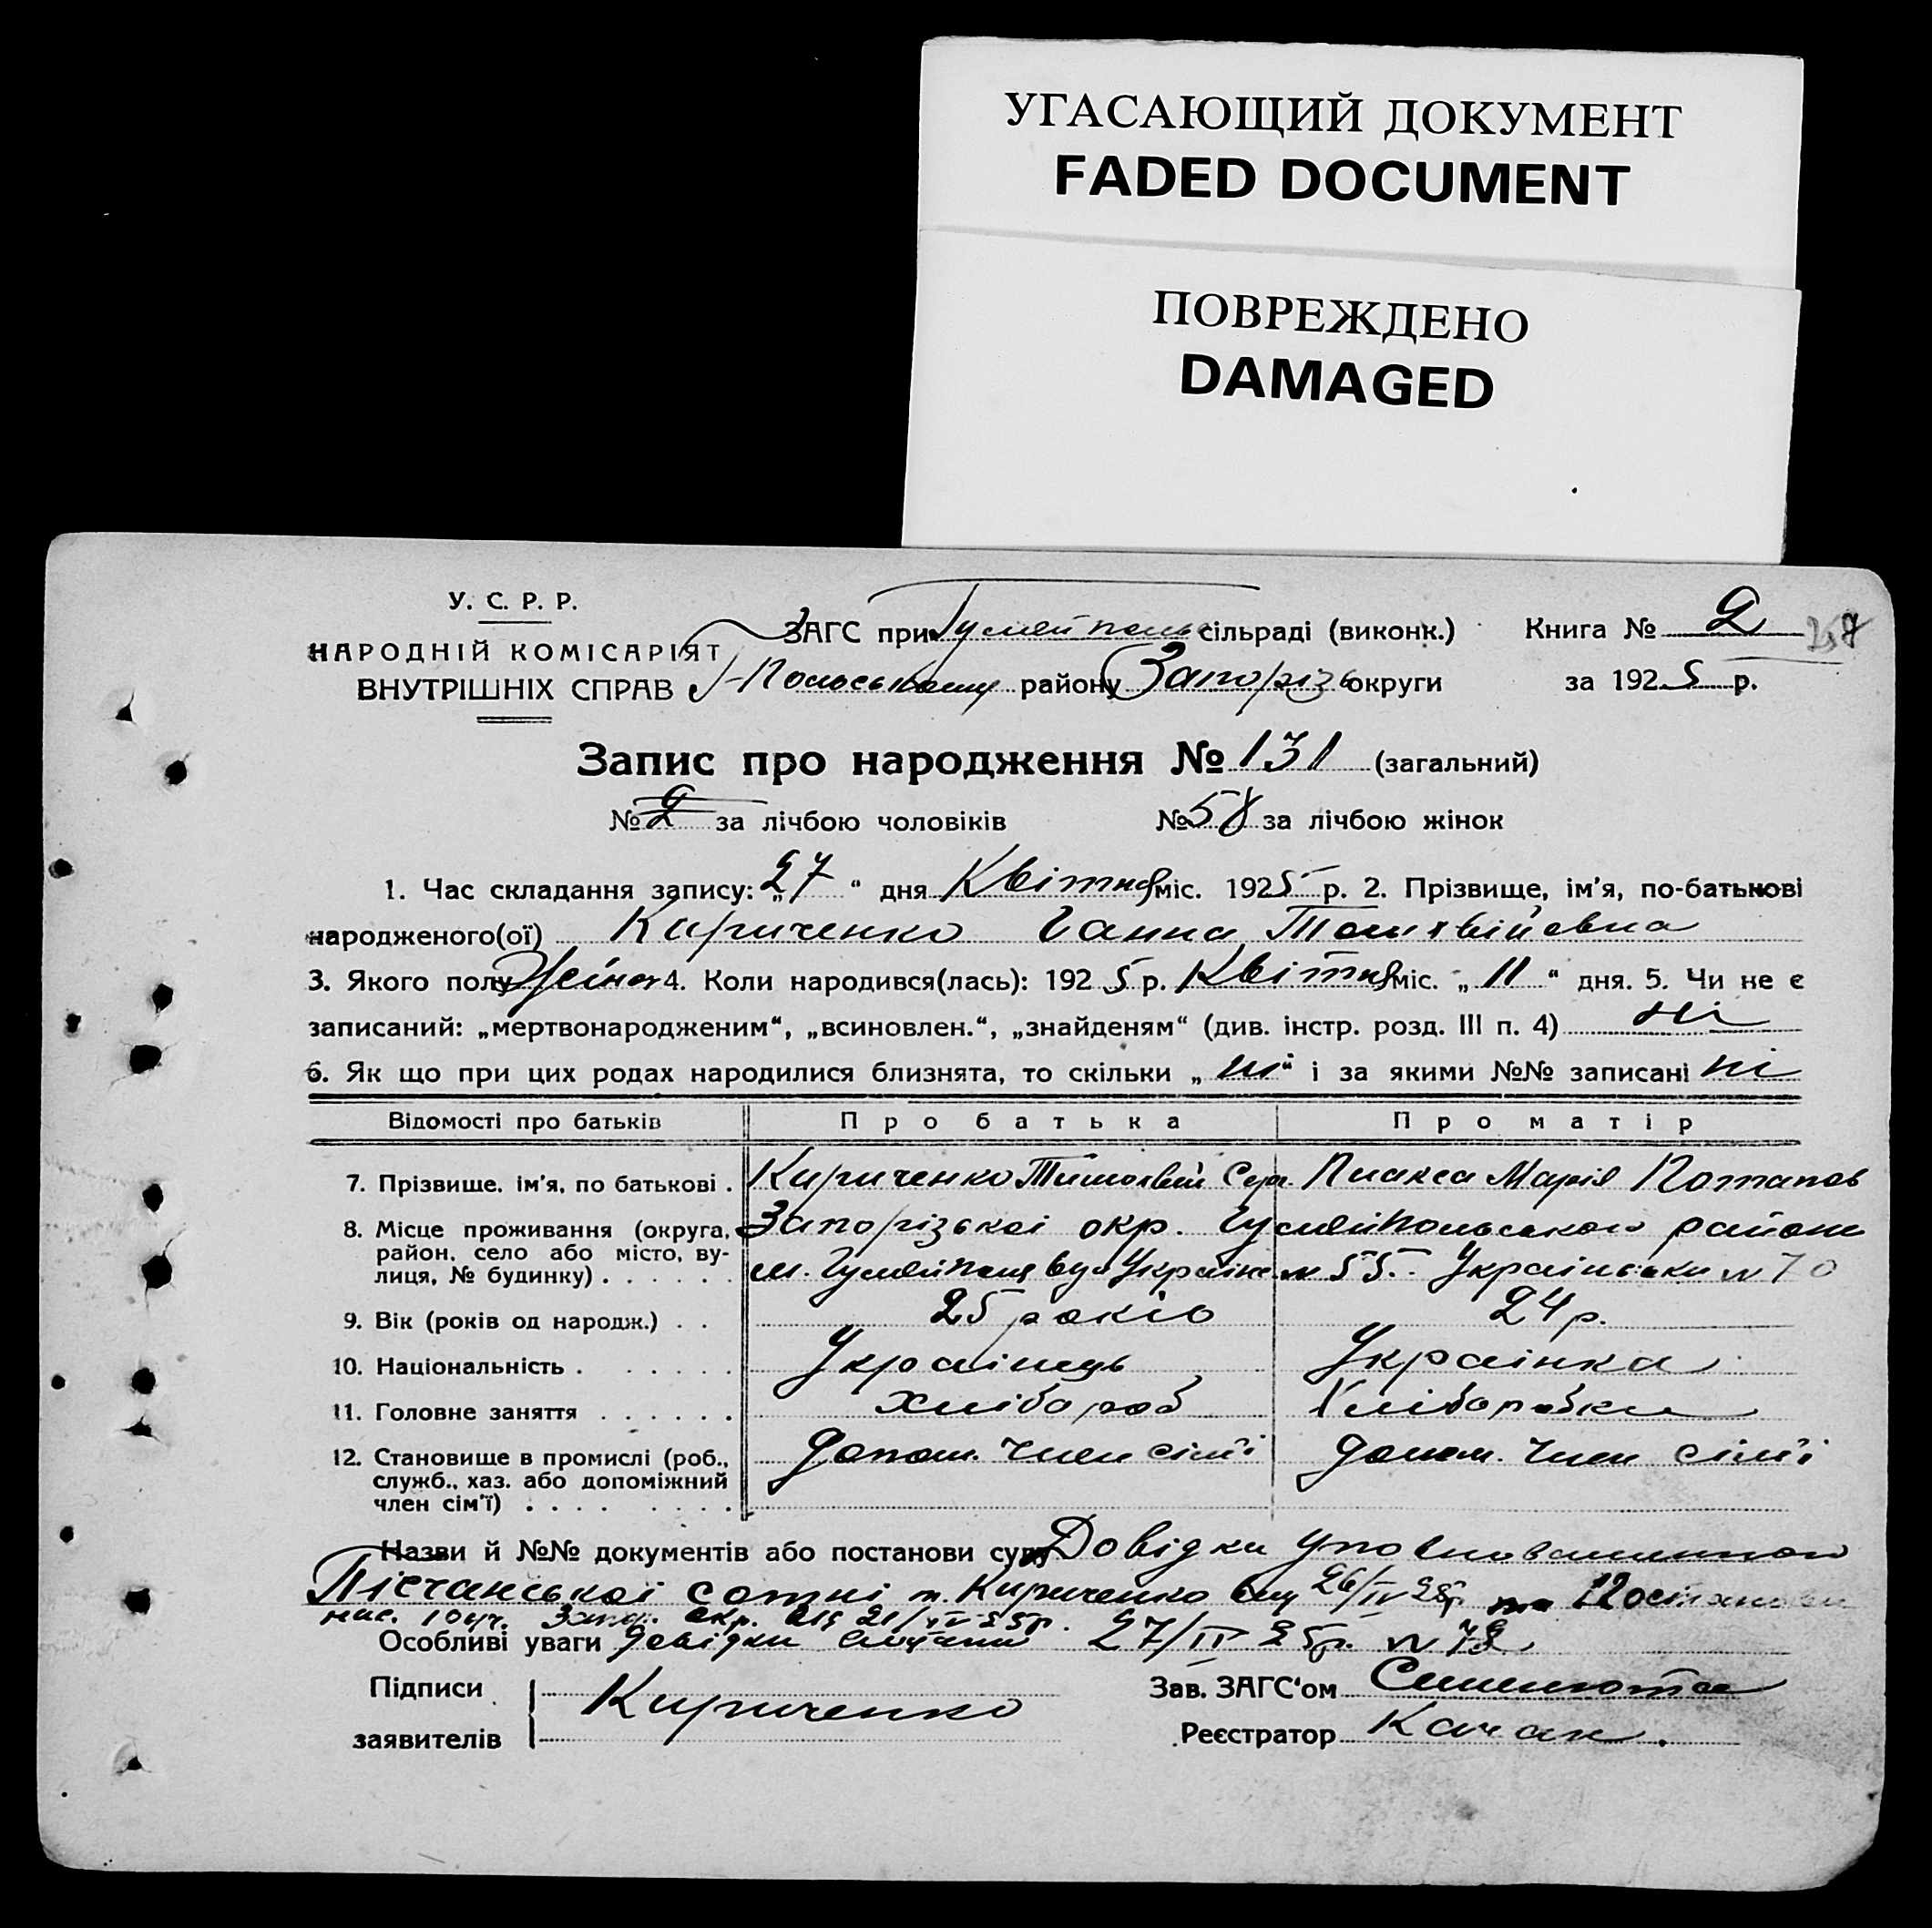 УГАСАЮЩИЙ ДОКУМЕНТ
FADED DOCUMENT
ПОВРЕЖДЕНО
DAMAGED
У. С. Р. Р.
НАРОДНІЙ КОМІСАРІЯТ
ВНУТРІШНІХ СПРАВ
ЗАГС при Гуляйпольс сільраді (виконк.) Книга № 2
району Запорізь округи за 1925 р.
Запис про народження № 131 (загальний)
№ за лічбою чоловіків № 58 за лічбою жінок
1. Час складання запису: „27“ дня Квітня міс. 1925 р. 2. Прізвище, ім’я, по-батькові
народженого(ої) Кириченко Ганна
3. Якого полу Жіноч 4. Коли народився(лась): 1925 р. Квітня міс. „11“ дня. 5. Чи не є
записаний: „мертвонародженим“, „всиновлен.“, „знайденям“ (див. інстр. розд. III п. 4) ні
6. Як що при цих родах народилися близнята, то скільки „ні“ і за якими №№ записані ні
Відомості про батьків Про батька Про матір
7. Прізвище, ім’я, по батькові . Кириченко Марія Потапов
8. Місце проживання (округа, район, село або місто, вулиця, № будинку) . . . . . . Запорізької окр. Гуляйпольського району
м. Гуляйполя вул Українс. № 55. Українська № 70
9. Вік (років од народж.) . . 25 років 24 р.
10. Національність . . . . . . Українець Українка
11. Головне заняття . . . . . . хлібороб Хліборобка
12. Становище в промислі (роб., служб., хаз. або допоміжний член сім’ї) . . . . . . . . допом. член сім'ї допом. член сім'ї
Назви й №№ документів або постанови суду Довідки
Пісчанської сотні т. Кириченко від 26/IV 25р та Постанови
Особливі уваги довідки 27/IV 25р. №
Підписи заявителів Кириченко
Зав. ЗАГС‘ом
Реєстратор Качан.